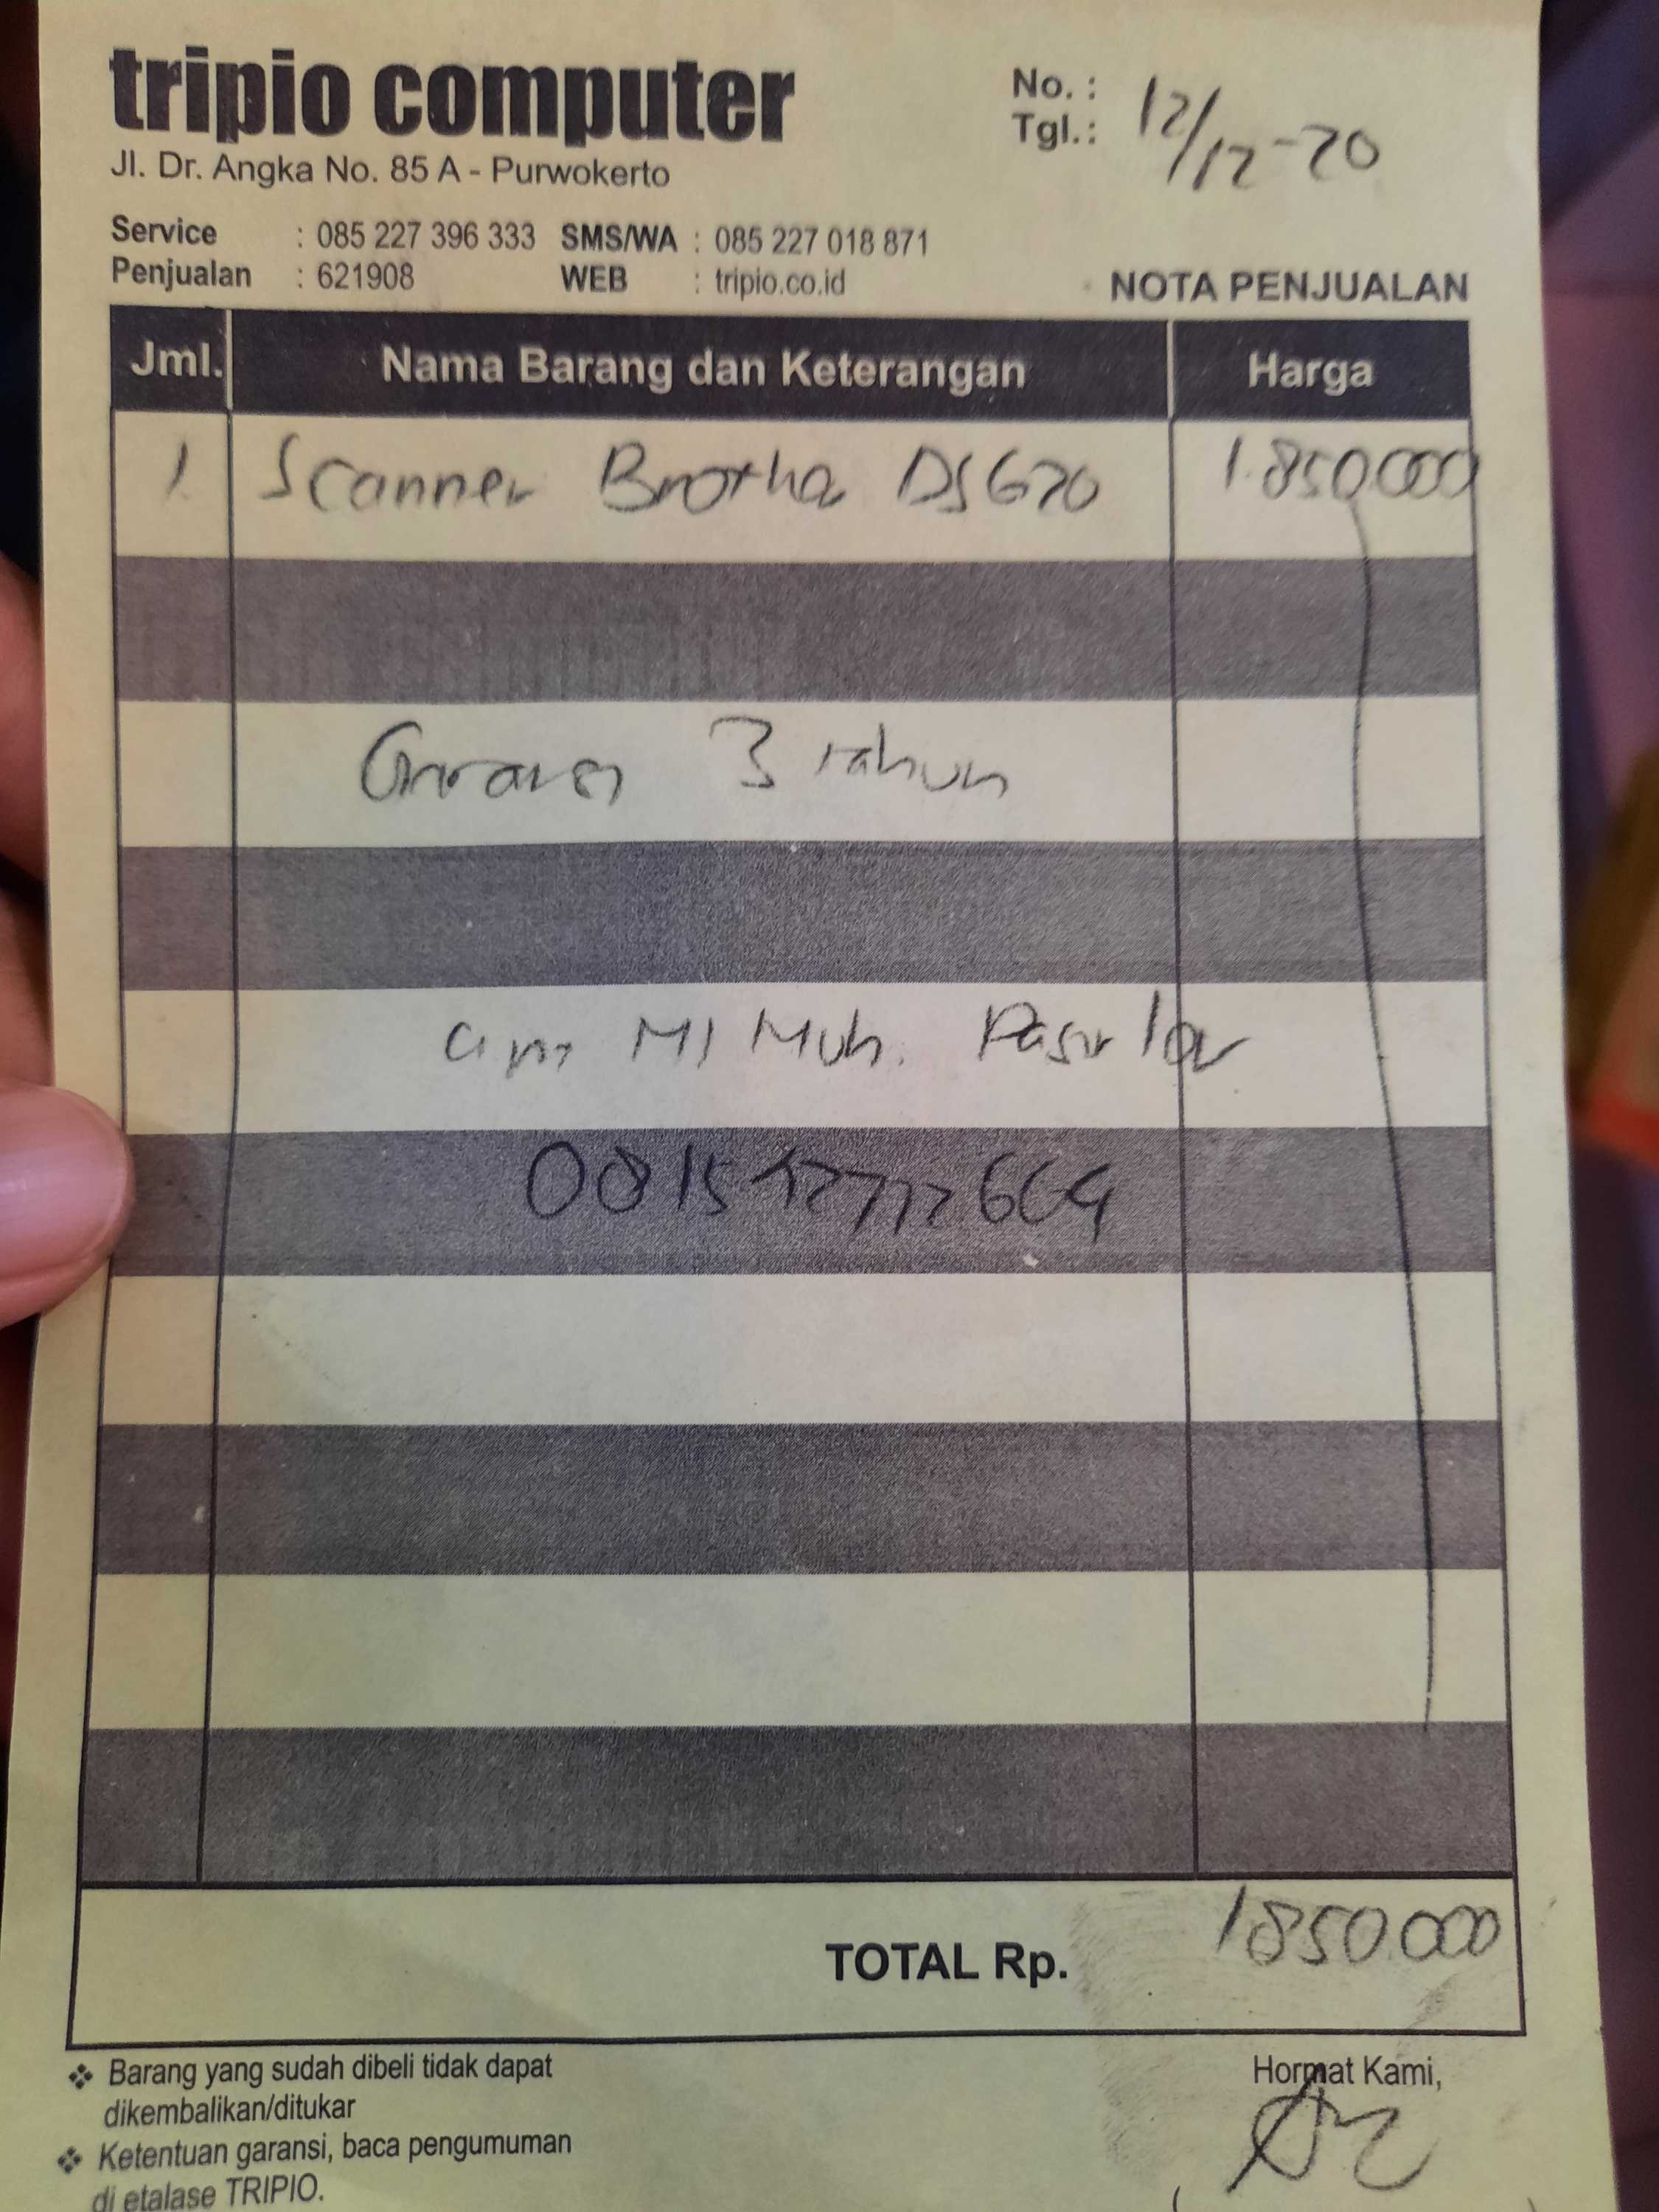 tripio computer
Jl. Dr. Angka No. 85 A - Purwokerto
No. :
Tgl. : 12/12-20
Service : 085 227 396 333 SMS/WA : 085 227 018 871
Penjualan : 621908 WEB : tripio.co.id
NOTA PENJUALAN
Jml. Nama Barang dan Keterangan Harga
1 Scanner Brother DS620 1.850.000
Garansi 3 tahun
MI Muh. Pasir lor
TOTAL Rp. 1850.000
❖ Barang yang sudah dibeli tidak dapat
dikembalikan/ditukar
❖ Ketentuan garansi, baca pengumuman
di etalase TRIPIO.
Hormat Kami,